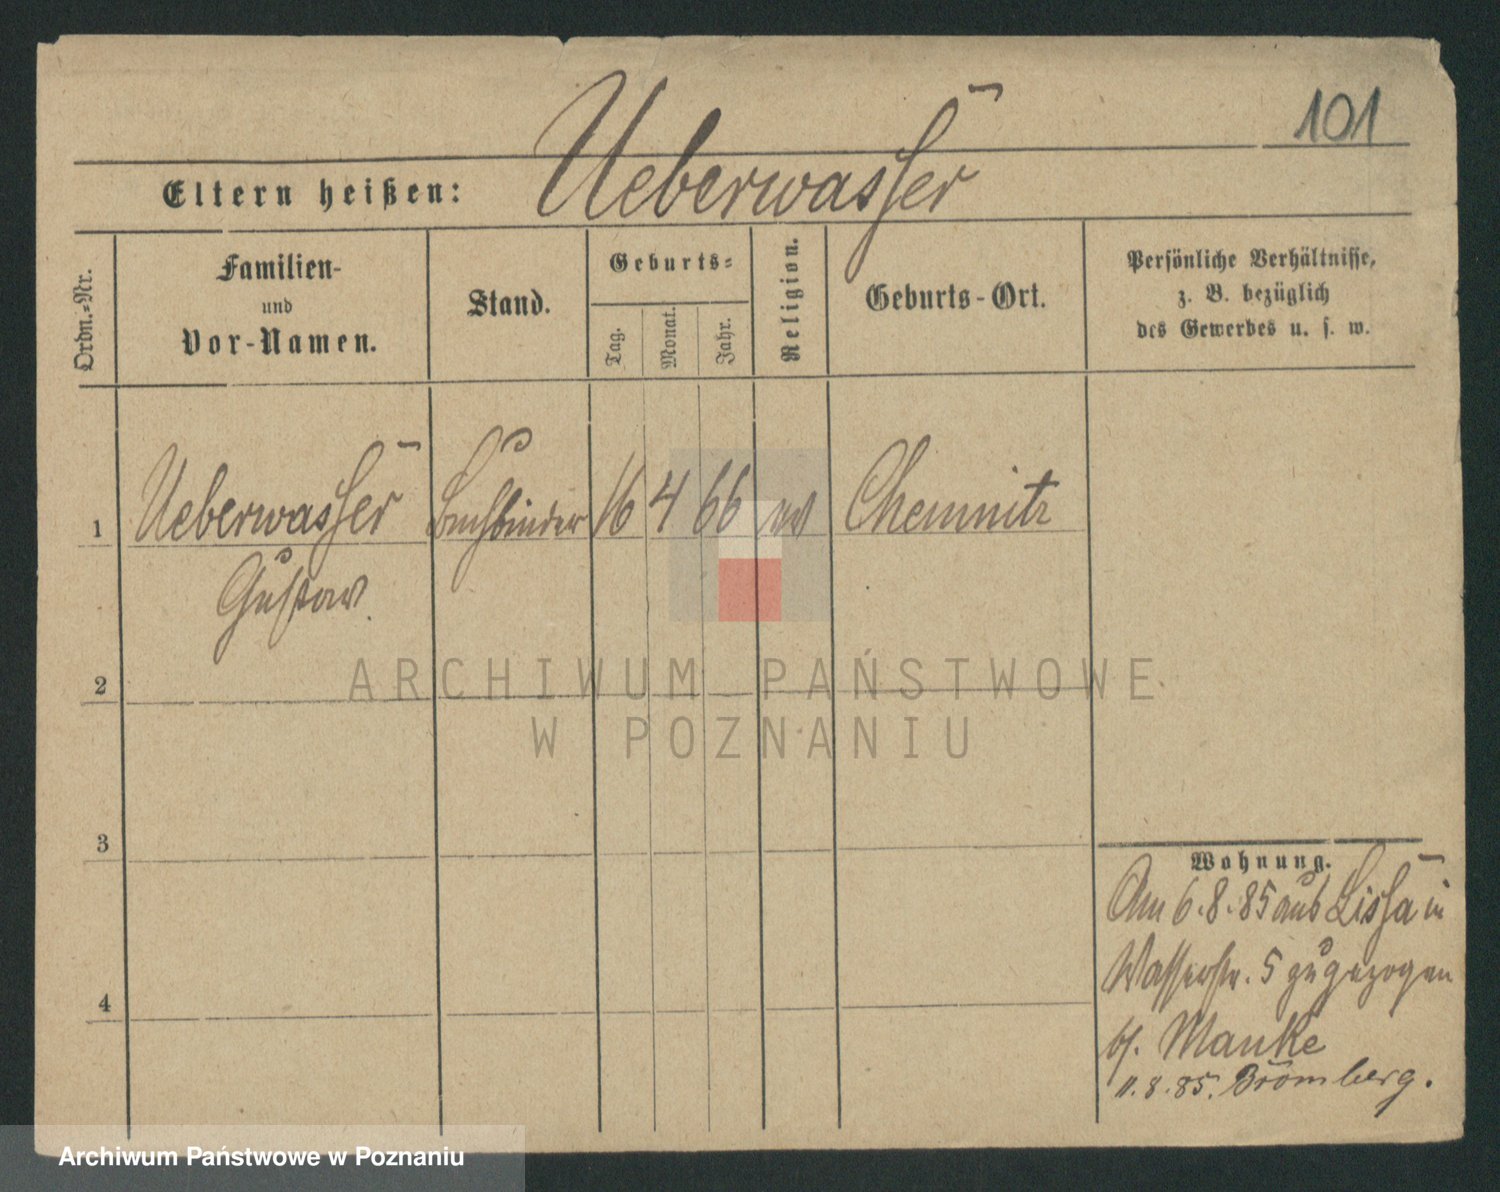 101
Eltern heißen: Ueberwasser
Ordn.-Nr.
Familien-
und
Vor-Namen.
Stand.
Geburts-
Tag.
Monat.
Jahr.
Religion.
Geburts-Ort.
Persönliche Verhältnisse,
z. B. bezüglich
des Gewerbes u. s. w.
1 Ueberwasser Buchbinder 16 4 66 ev Chemnitz
Gustav.
2
3
4
Wohnung.
Am 6.8.85 aus Lissa in
Wasserstr. 5 zugezogen
bei Manke
11.8.85. Bromberg.
ARCHIWUM PAŃSTWOWE
W POZNANIU
Archiwum Państwowe w Poznaniu